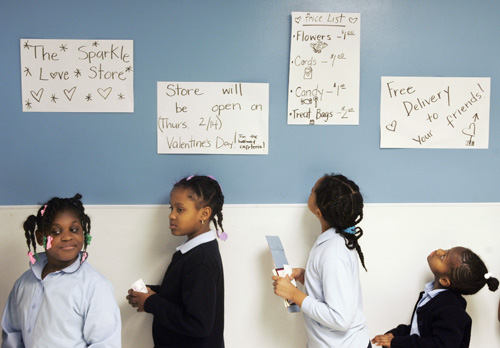 The Sparkle
Love Store
Store will
be open on
(Thurs. 2/14)
Valentine's Day!
Price List
• Flowers -
• Cards -
• Candy -
• Treat Bags -
Free
Delivery
to
Your friends!